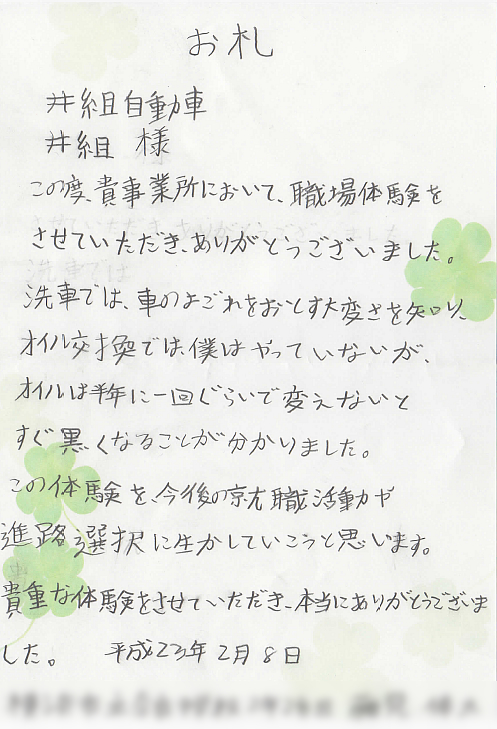 お札
井組自動車
井組 様
この度、貴事業所において、職場体験を
させていただき、ありがとうございました。
洗車では、車のよごれをおとす大変さを知り、
オイル交換では、僕はやっていないが、
オイルは半年に一回ぐらいで変えないと
すぐ黒くなることが分かりました。
この体験を、今後の就職活動や
進路選択に生かしていこうと思います。
貴重な体験をさせていただき、本当にありがとうございま
した。 平成23年2月8日